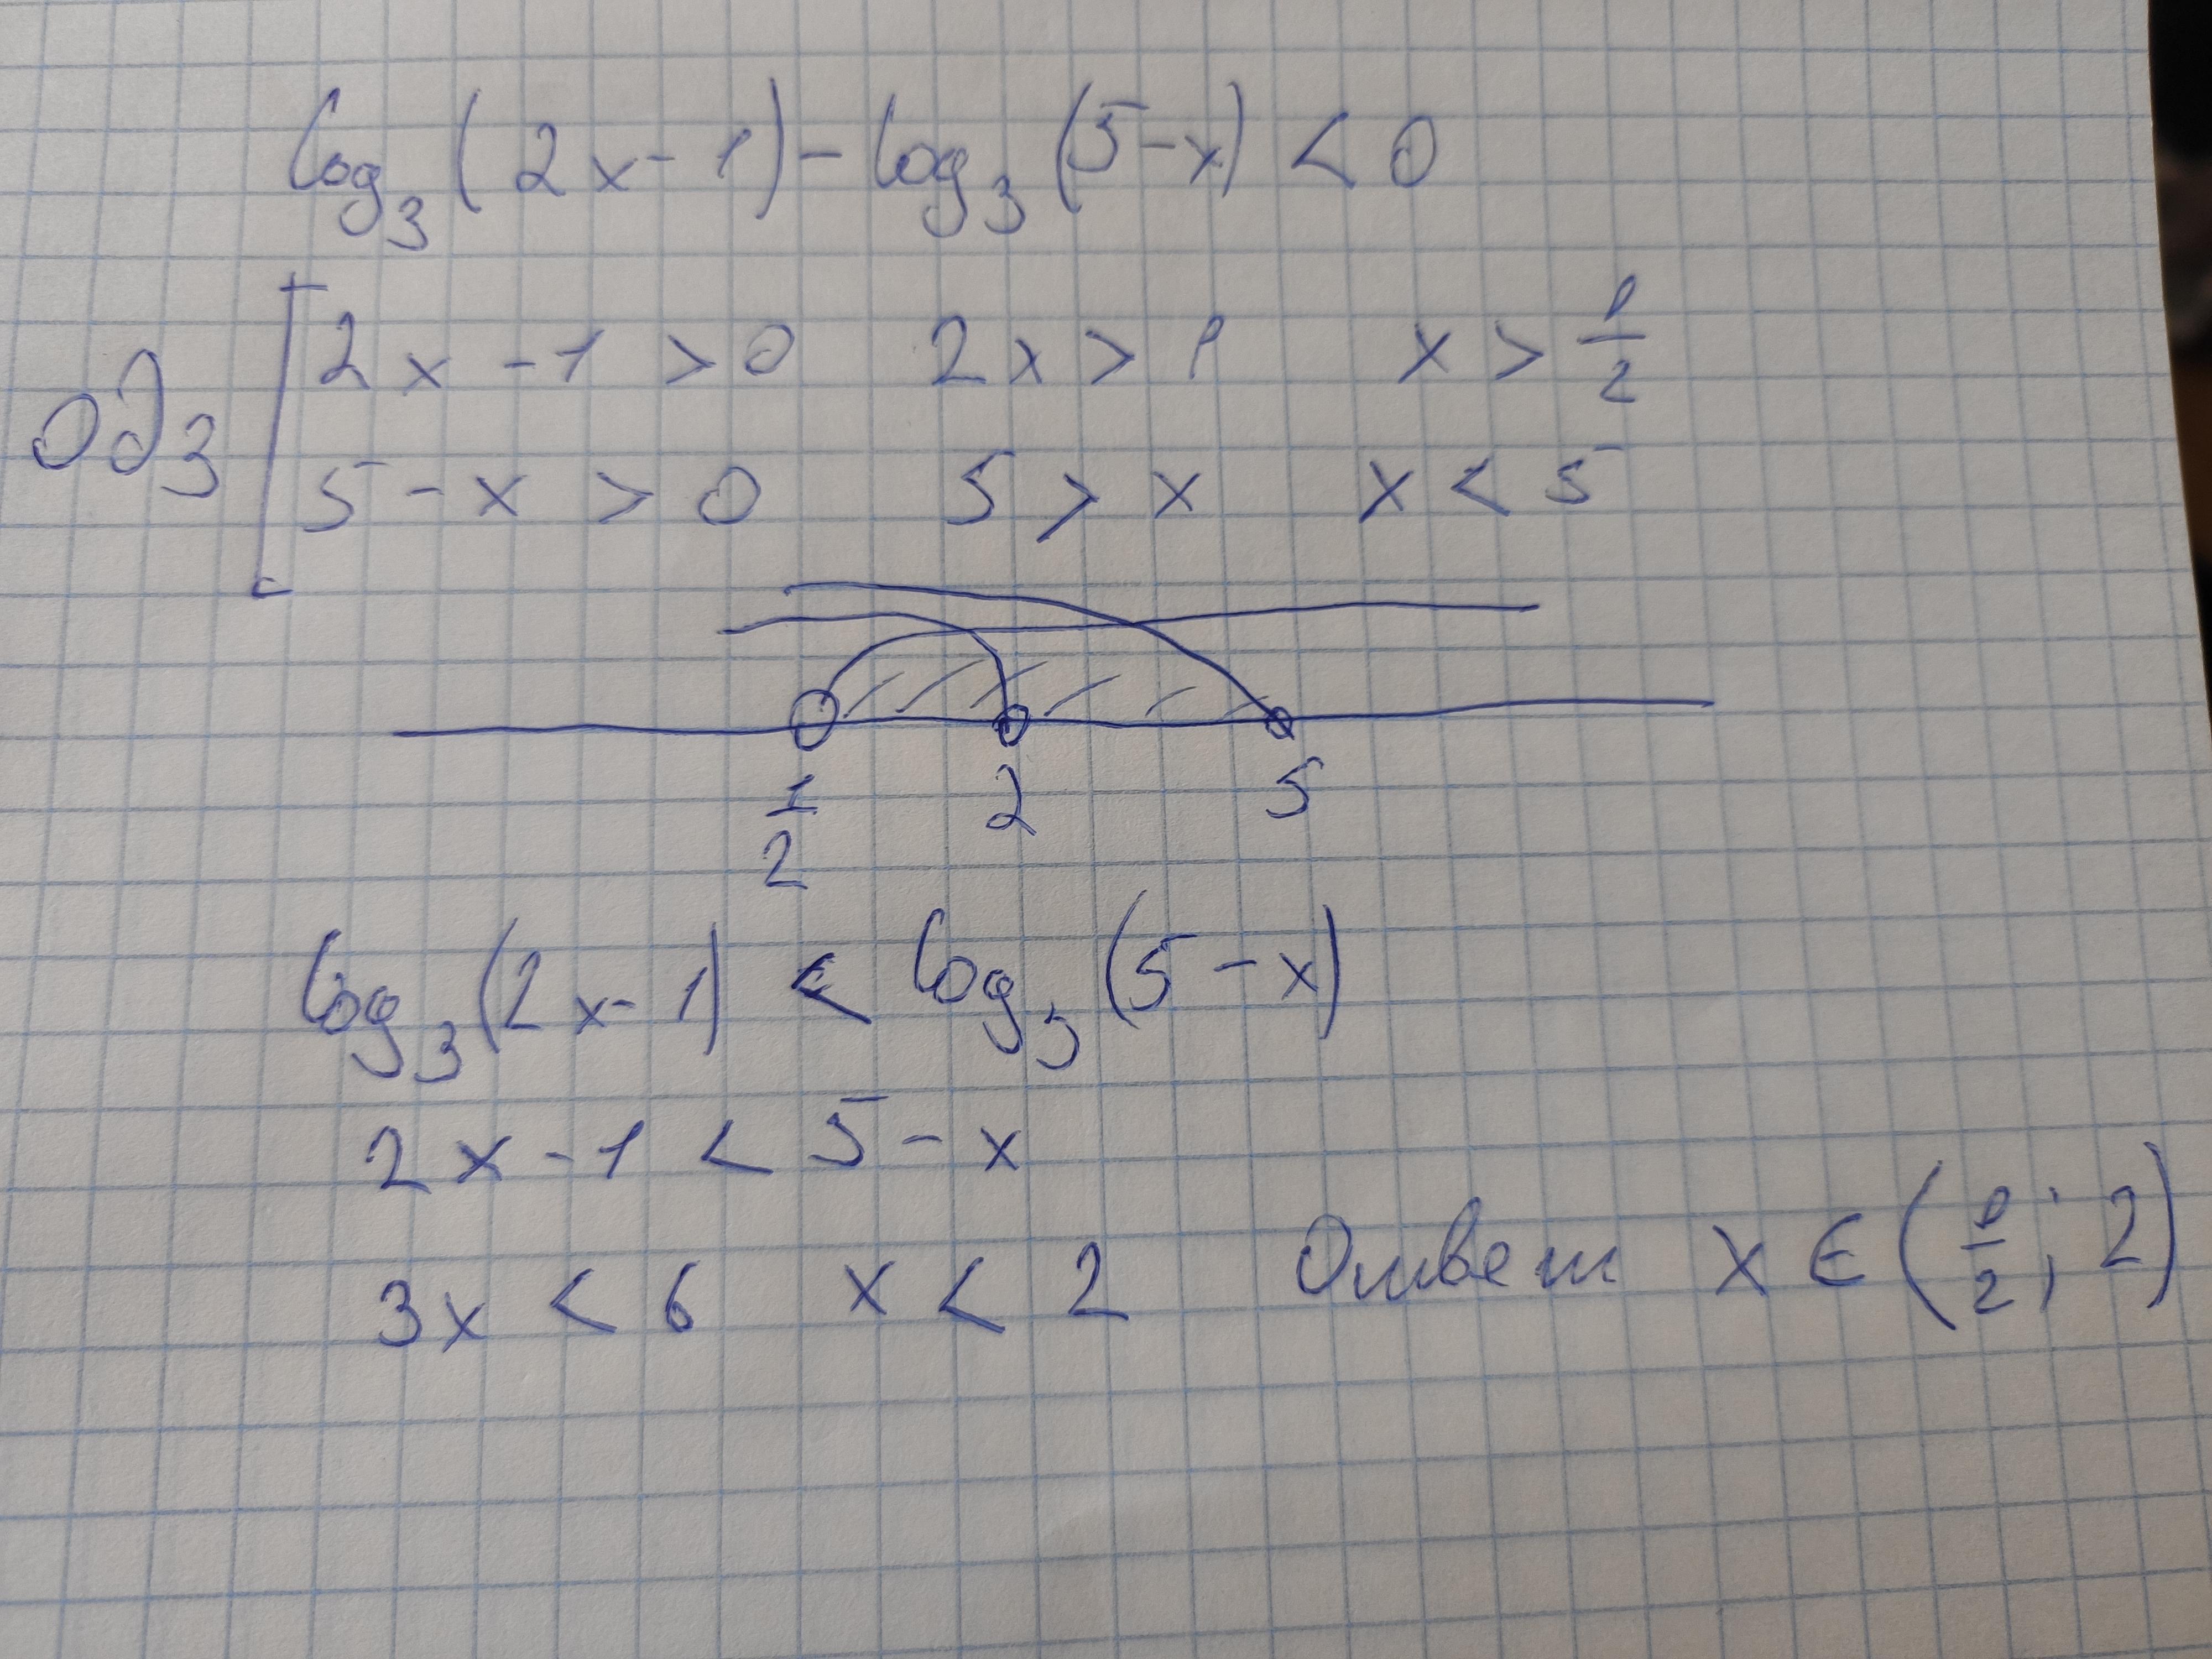 log₃(2x-1)-log₃(5-x)<0
ОДЗ
2x-1>0 2x>1 x>1/2
5-x>0 5>x x<5
1/2 2 5
log₃(2x-1)<log₃(5-x)
2x-1<5-x
3x<6 x<2 Ответ x∈(1/2;2)